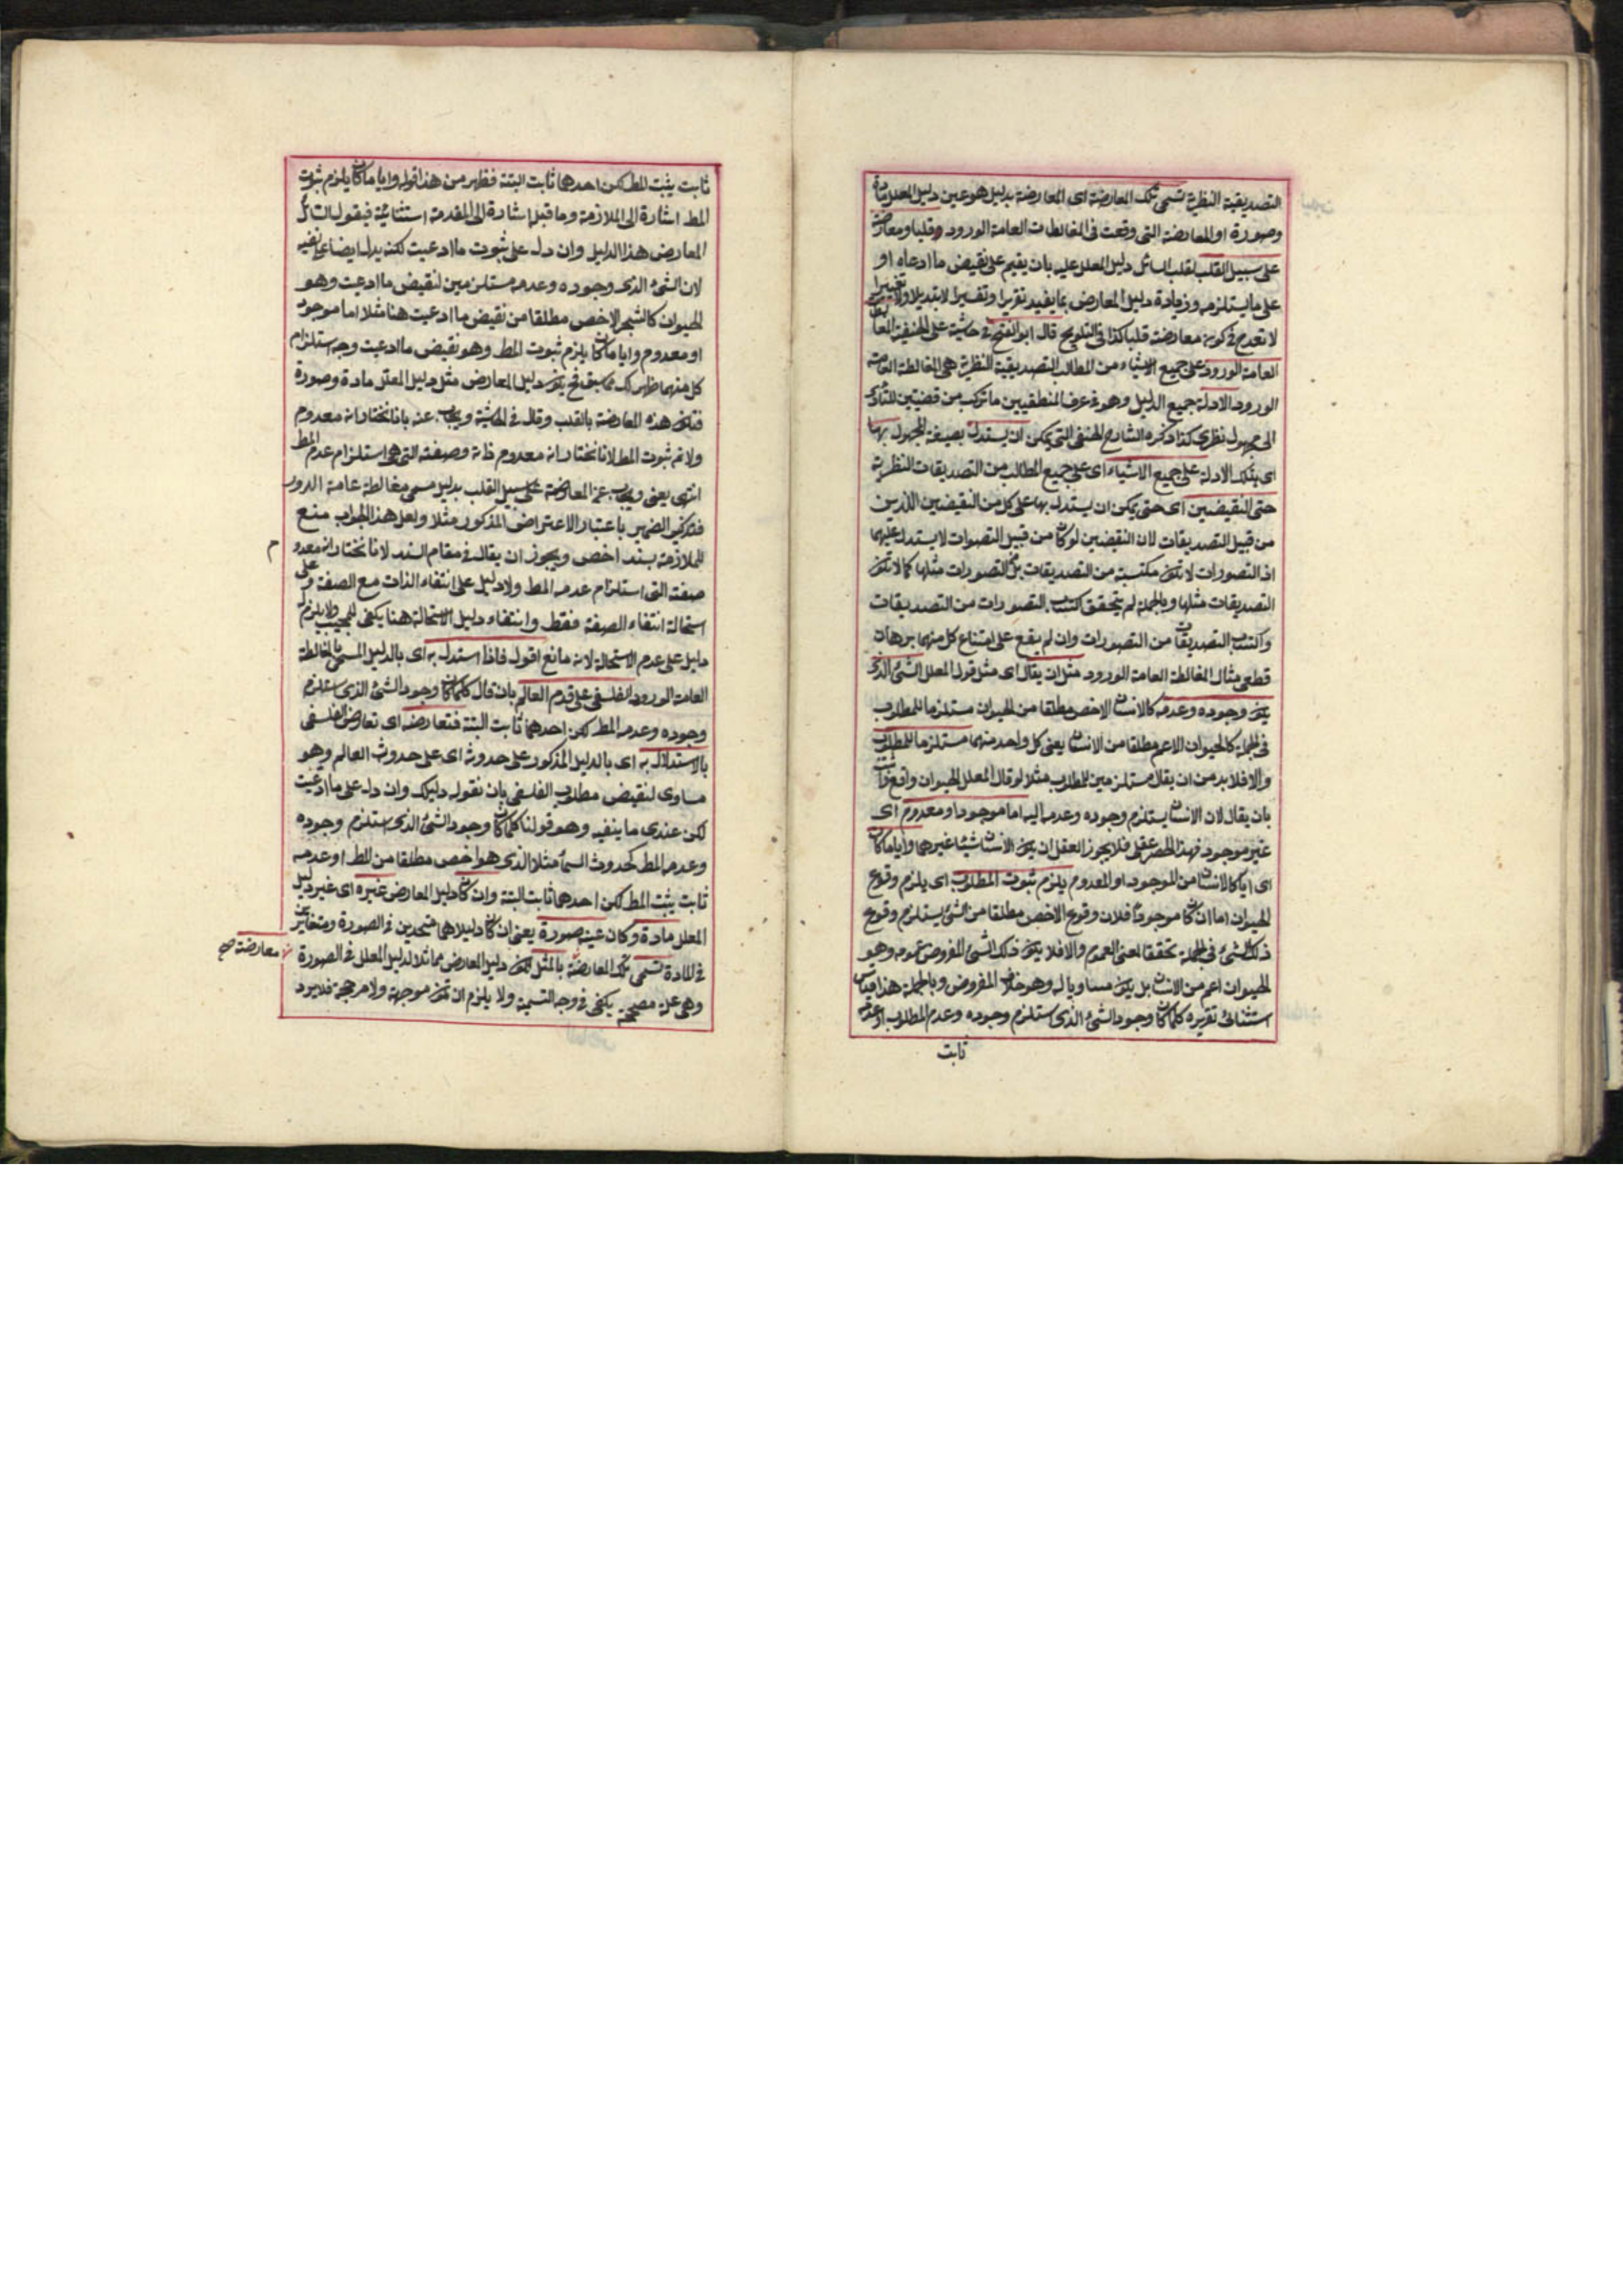 التصديقية النظرية تسمى تلك المعارضة اى المعارضة بدليل هو عين دليل المعلل مادة
وصورة او المعارضة التى وقعت فى المغالطات العامة الورود وقلبا ومعارضة
على سبيل القلب لقلب السائل دليل المعلل عليه بان يقيم على نقيض ما ادعاه او
على ما يستلزمه وزيادة دليل المعارض بما يفيد تقريرا وتفسيرا لا تبديلا ولا تغييرا
لا تقدح فى كونه معارضة قلبا كذا فى التلويح قال ابو الفتح فى حاشية على الحنفية
العامة الورود على جميع الاشياء من المطالب التصديقية النظرية هى المغالطة العامة
الورود الادلة جميع الدليل وهو فى عرف المنطقيين ما تركب من قضيتين للتأدى
الى مجهول نظرى كذا ذكره الشارح الحنفى التى يمكن ان يستدل بصيغة المجهول بها
اى بتلك الادلة على جميع الاشياء اى على جميع المطالب من التصديقات النظرية
حتى النقيضين اى حتى يمكن ان يستدل بها على كل من النقيضين الذين
من قبيل التصديقات لان النقيضين لو كان من قبيل التصورات لا يستدل عليهما
اذ التصورات لا تكون مكتسبة من التصديقات بل التصورات مثلها كما لا تكون
التصديقات مثلها وبالجملة لم يتحقق اكتساب التصورات من التصديقات
واكتساب التصديقات من التصورات وان لم يقع على امتناع كل منهما برهان
قطعى مثال المغالطة العامة الورود مثل ان يقال اى مثل قول المعلل الشئ الذى
يكون وجوده وعدمه كالانسان الاخص مطلقا من الحيوان مستلزما للمطلوب
فى الجملة كالحيوان الاعم مطلقا من الانسان يعنى كل واحد منهما مستلزما للمطلوب
والا فلا بد من ان يقال مستلزمين للمطلوب مثلا لو قال المعلل الحيوان واقع وثابت
بان يقال لان الانسان يستلزم وجوده وعدمه اليه اما موجود او معدوم اى
غير موجود فهذا الحصر عقلى فلا يجوز العقل ان يكون الانسان شيئا غيرهما وايا ما كان
اى ايا كالانسان من الموجود او المعدوم يلزم ثبوت المطلوب اى يلزم وقوع
الحيوان اما ان كان موجودا فلان وقوع الاخص مطلقا من الشئ يستلزم وقوع
ذلك الشئ فى الجملة تحقيقا لمعنى العموم والا فلا يكون ذلك الشئ المفروض عمومه وهو
الحيوان اعم من الانسان بل يكون مساويا له وهو خلاف المفروض وبالجملة هذا قياس
استثنائى تقريره كلما كان وجود الشئ الذى يستلزم وجوده وعدم المطلوب او عدمه
ثابت
ثابت يثبت المط لكن احدهما ثابت البتة فظهر من هذا قوله وايا ما كان يلزم ثبوت
المط اشارة الى الملازمة وما قبله اشارة الى المقدمة استثنائية فيقول السائل
المعارض هذا الدليل وان دل على ثبوت ما ادعيت لكنه يدل ايضا على نفيه
لان الشئ الذى وجوده وعدمه مستلزمين لنقيض ما ادعيت وهو
الحيوان كالشجر الاخص مطلقا من نقيض ما ادعيت هنا مثلا اما موجود
او معدوم وايا ما كان يلزم ثبوت المط وهو نقيض ما ادعيت وجه استلزام
كل منهما ظهر لك مما سبق فح يكون دليل المعارض مثل دليل المعلل مادة وصورة
فتكون هذه المعارضة بالقلب وقال فى الحاشية ويجاب عنه بانا نختار انه معدوم
ولا تم ثبوت المط لانا نختار انه معدوم ذاته وصفته التى هى استلزام عدم المط
انتهى يعنى ويجاب عن المعارضة على سبيل القلب بدليل مسمى مغالطة عامة الورود
فتذكير الضمير باعتبار الاعتراض المذكور مثلا ولعل هذا الجواب منع
للملازمة بسند اخص ويجوز ان يقال فى مقام السند لانا نختار انه معدو
م
صفته التى استلزام عدمه المط ولا دليل على انتفاء الذات مع الصفة وعلى
استحالة انتفاء الصفة فقط وانتفاء دليل الاستحالة هنا يكفى للمجيب ولا يلزم
دليل على عدم الاستحالة لانه مانع اقول فاذا استدل به اى بالدليل المسمى بالمغالطة
العامة الورود الفلسفى على قدم العالم بان قال كلما كان وجود الشئ الذى يستلزم
وجوده وعدمه المط لكن احدهما ثابت البتة فتعارضه اى تعارض الفلسفى
بالاستدلال به اى بالدليل المذكور على حدوثه اى على حدوث العالم وهو
مساوى لنقيض مطلوب الفلسفى بان نقول دليلك وان دل على ما ادعيت
لكن عندى ما ينفيه وهو قولنا كلما كان وجود الشئ الذى يستلزم وجوده
وعدمه المط كحدوث السماء مثلا الذى هو اخص مطلقا من المط او عدمه
ثابت يثبت المط لكن احدهما ثابت البتة وان كان دليل المعارض غيره اى غير دليل
المعلل مادة وكان عينه صورة يعنى ان كان دليلاهما متحدين فى الصورة ومتغايرين
فى المادة تسمى تلك المعارضة بالمثل لكون دليل المعارض مماثلا لدليل المعلل فى الصورة
معارضة صح
وهى علة مصححة يكفى فى وجه التسمية ولا يلزم ان تكون موجهة ولا مرجحة فلا يرد